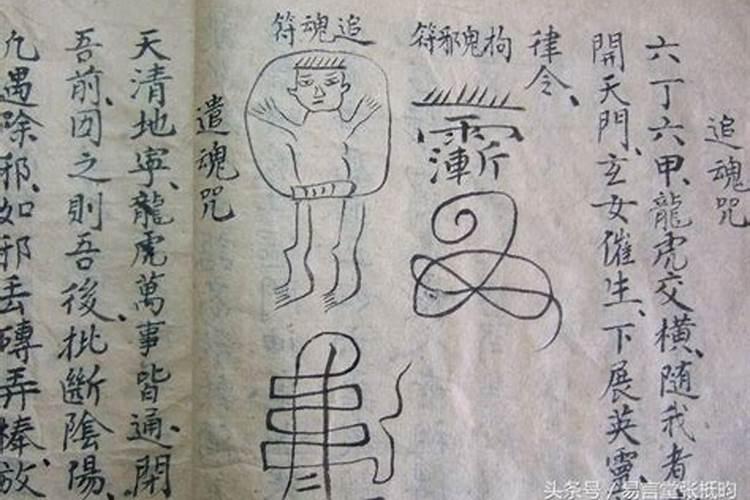 追魂咒
六丁六甲、龍虎交橫、隨我者
開天門、玄女催生、下展英靈
律令、
拘鬼邪符
追魂符
遣魂咒
天清地寧、龍虎萬事皆通、開
吾前、因之則吾後、批斷陰陽、
凡遇除邪、如邪丢磚弄棒、放
头条号 / 易言堂张抵昀